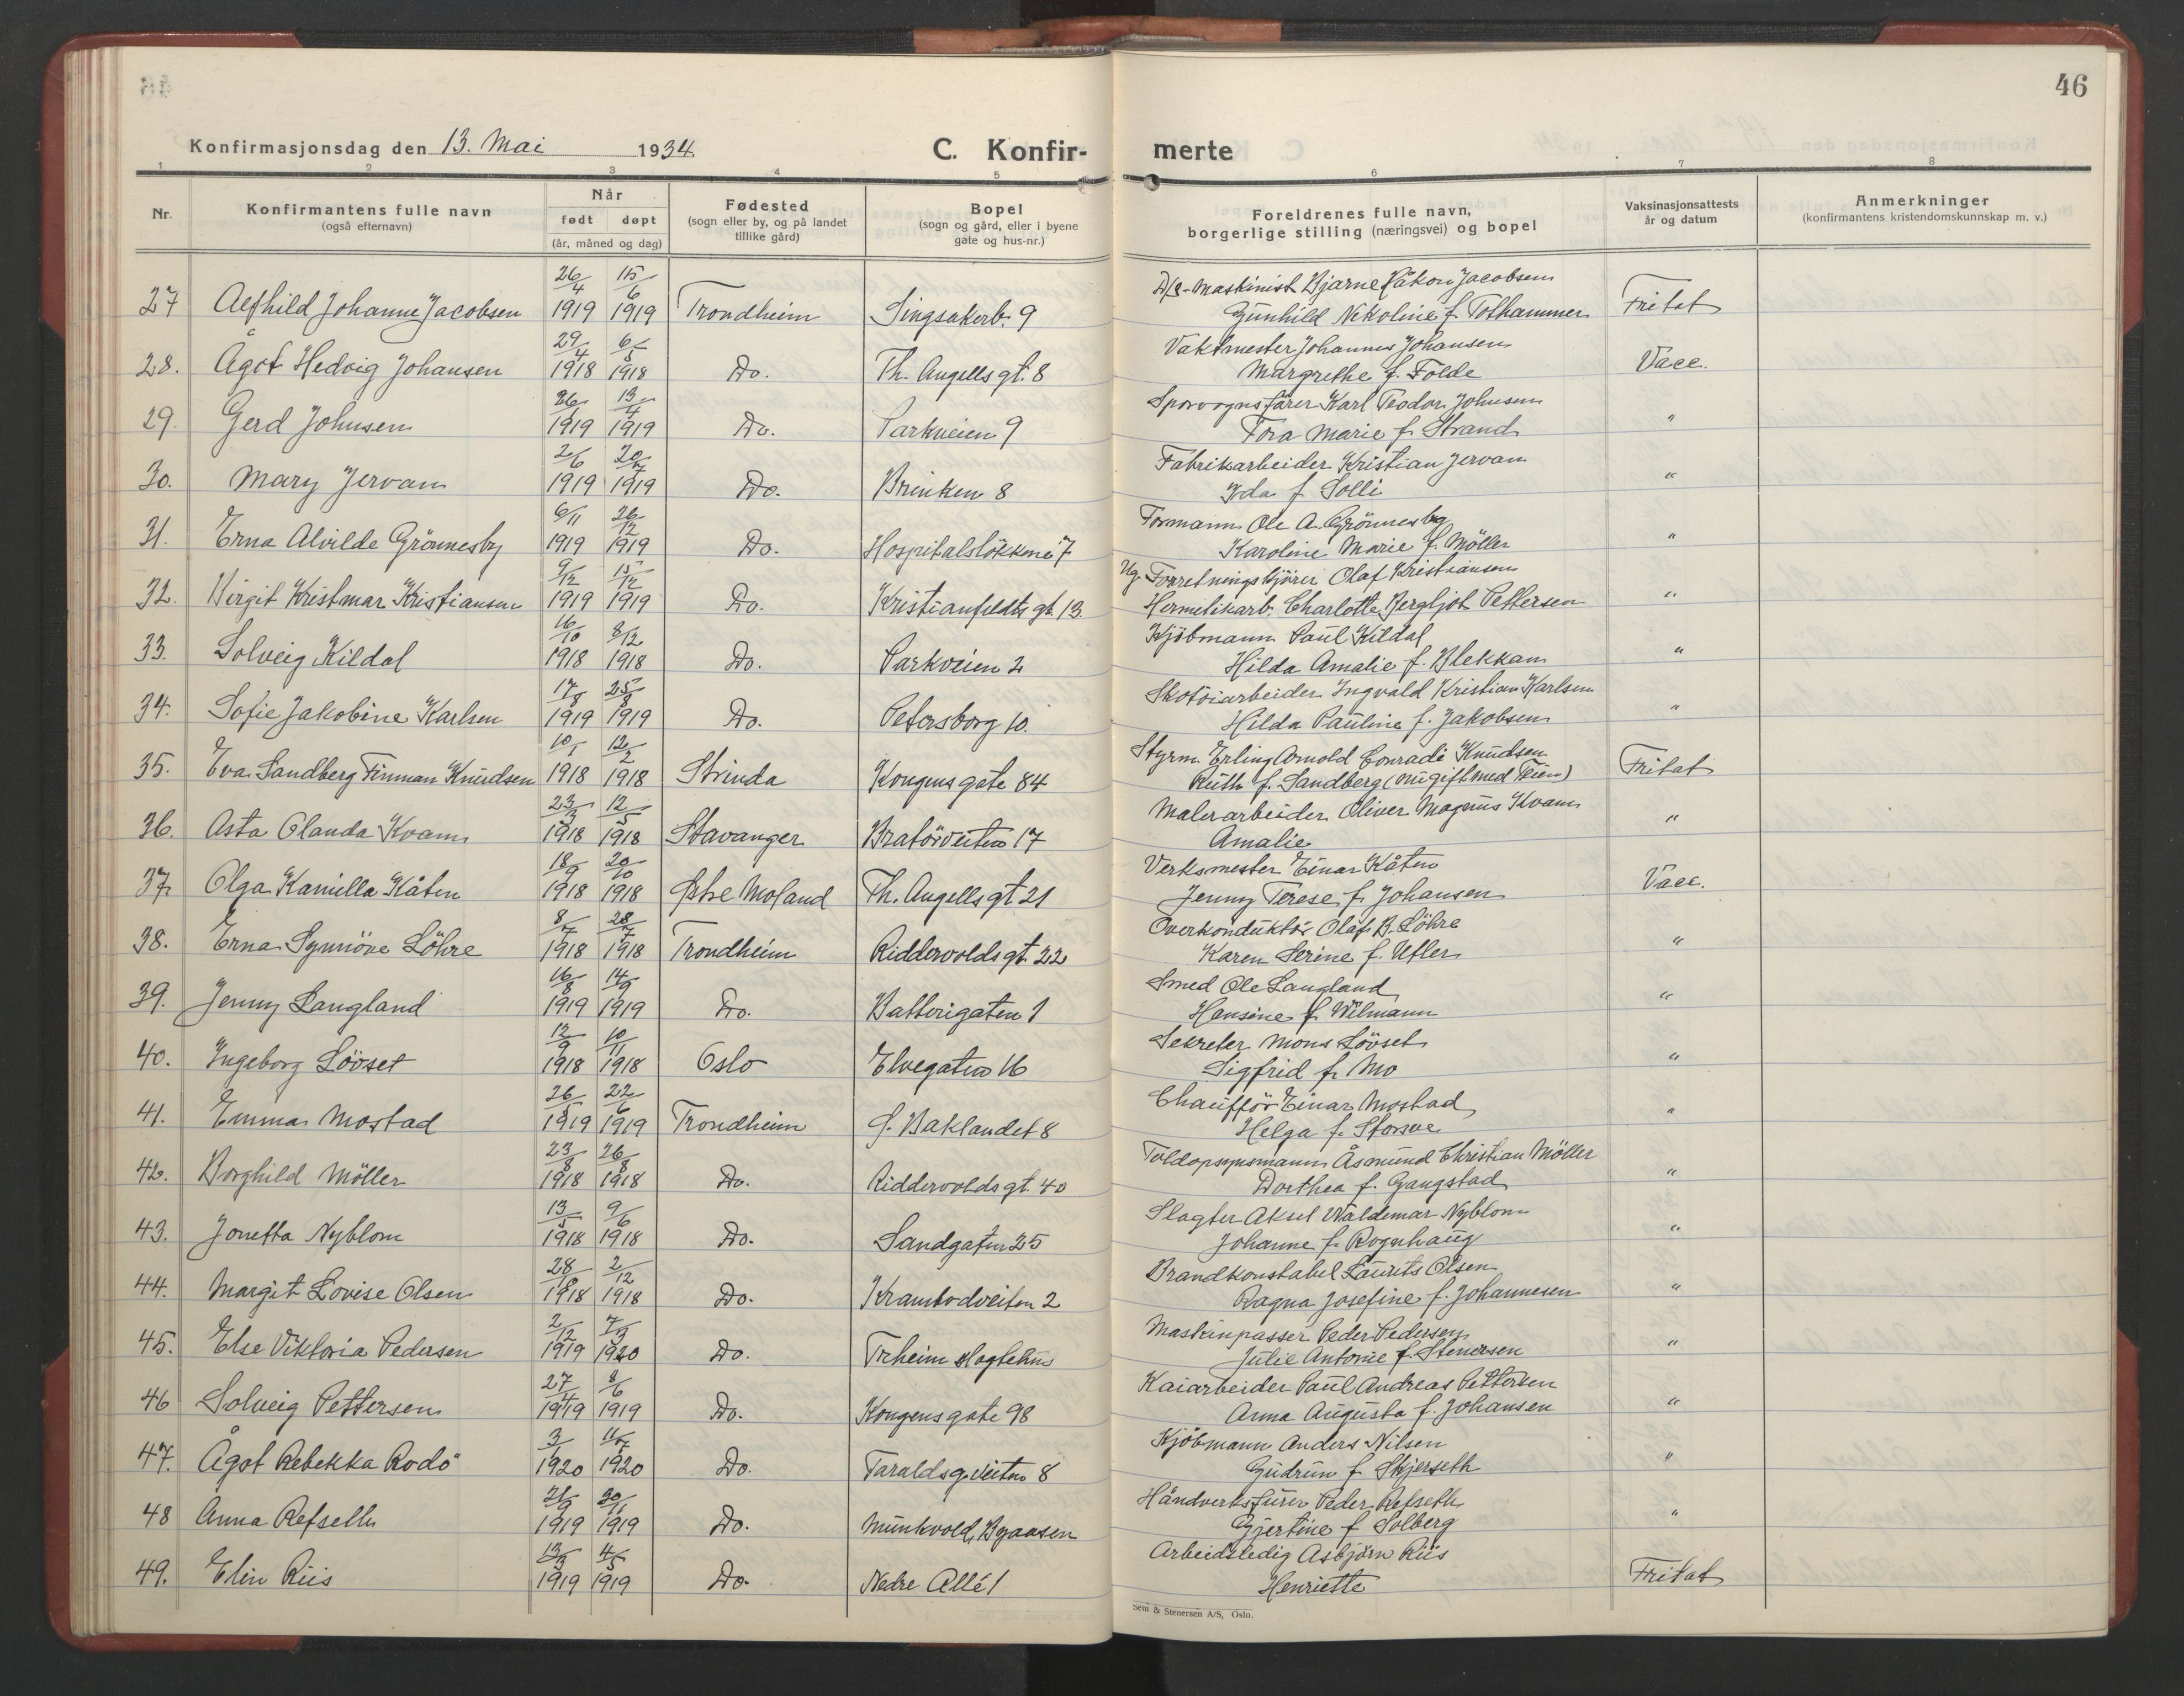 46
Konfirmasjonsdag den 13. Mai 1934
C. Konfir- merte
1 2 3 4 5 6 7 8
Nr.
Konfirmantens fulle navn
(også efternavn)
Når
født døpt
(år, måned og dag)
Fødested
(sogn eller by, og på landet
tillike gård)
Bopel
(sogn og gård, eller i byene
gate og hus-nr.)
Foreldrenes fulle navn,
borgerlige stilling (næringsvei) og bopel
Vaksinasjonsattests
år og datum
Anmerkninger
(konfirmantens kristendomskunnskap m. v.)
26/4 15/6 D/S-Maskinist Bjarne Håkon Jacobsen
27 Alfhild Johanne Jacobsen 1919 1919 Trondheim Singsakerb. 9 Gunhild Nikoline f. Tolhammer Fritat
29/4 6/5 Vaktmester Johannes Johansen
28. Ågot Hedvig Johansen 1918 1918 Do. Th. Angells gt. 8 Margrethe f. Folde Vacc.
26/1 13/4 Sporvognsfører Karl Teodor Johnsen
29. Gerd Johnsen 1919 1919 Do. Parkveien 9 Tora Marie f. Strand "
2/6 20/7 Fabrikarbeider Kristian Jervan
30. Mary Jervan 1919 1919 Do. Brinken 8 Ida f. Solli "
6/11 26/12 Formann Ole A. Grönnesby
31. Erna Alvilde Grönnesby 1919 1919 Do. Hospitalslökkene 7 Karoline Marie f. Möller "
9/12 15/12 Ug. Forretningskjörer Olaf Kristiansen
32. Birgit Kristmar Kristiansen 1919 1919 Do. Kristianfeldts gt. 13. Hermetikarb. Charlotte Bergljot Pettersen "
16/10 8/12 Kjöbmann Paul Kildal
33. Solveig Kildal 1918 1918 Do. Parkveien 2 Hilda Amalie f. Blekkan "
17/8 25/8 Skotöiarbeider Ingvald Kristian Karlsen
34. Sofie Jakobine Karlsen 1919 1919 Do. Petersborg 10. Hilda Pauline f. Jakobsen "
10/1 12/2 Styrm. Erling Arnold Conradi Knudsen
35. Eva Sandberg Finman Knudsen 1918 1918 Strinda Kongens gate 84 Ruth f. Sandberg (nu gift med Fiin) Fritat
23/3 12/5 Malerarbeider Oliver Magnus Kvam
36. Asta Olanda Kvam 1918 1918 Stavanger Bratörveiten 17 Amalie "
18/9 20/10 Verksmester Einar Kåten
37. Olga Kamilla Kåten 1918 1918 Østre Moland Th. Angells gt 21 Jenny Terese f. Johansen Vacc.
8/7 28/7 Overkonduktör Olaf B. Löhre
38. Erna Synnöve Löhre 1918 1918 Trondheim Riddervolds gt. 22 Karen Serine f. Utler "
16/8 14/9 Smed Ole Langland
39. Jenny Langland 1919 1919 Do. Batterigaten 1 Hansine f. Wilmann "
12/9 10/11 Sekretær Mons Lövset
40. Ingeborg Lövset 1918 1918 Oslo Elvegaten 16 Sigfrid f. Mo "
26/5 22/6 Chaufför Einar Mostad
41. Emma Mostad 1919 1919 Trondheim S. Baklandet 8 Helga f. Storsve "
23/8 26/8 Toldopsynsmann Åsmund Christian Möller
42. Borghild Möller 1918 1918 Do. Riddervolds gt. 40 Dorthea f. Gangstad "
13/5 9/6 Slagter Aksel Waldemar Nyblom
43. Jonetta Nyblom 1918 1918 Do. Sandgaten 25 Johanne f. Rognhaug "
28/10 2/12 Brandkonstabel Laurits Olsen
44. Margit Lovise Olsen 1918 1918 Do. Krambodveiten 2 Ragna Josefine f. Johannesen "
2/12 7/3 Maskinpasser Peder Pedersen
45. Else Viktoria Pedersen 1919 1920 Do. Trheim Slagtehus Julie Antonie f. Stenersen "
27/4 8/6 Kaiarbeider Paul Andreas Pettersen
46 Solveig Pettersen 1919 1919 Do. Kongens gate 98 Anna Augusta f. Johansen "
3/1 11/7 Kjöbmann Anders Nilsen
47. Ågot Rebekka Rodö 1920 1920 Do. Taraldsg.veiten 8 Gudrun f. Skjerseth "
21/9 30/11 Håndverksfurer Peder Refseth
48 Anna Refseth 1919 1919 Do. Munkvold, Byaasen Gjertine f Solberg "
13/3 4/5 Arbeidsledig Asbjörn Riis
49. Elin Riis 1919 1919 Do. Nedre Allé 1 Henriette Fritat
Sem & Stenersen A/S, Oslo.